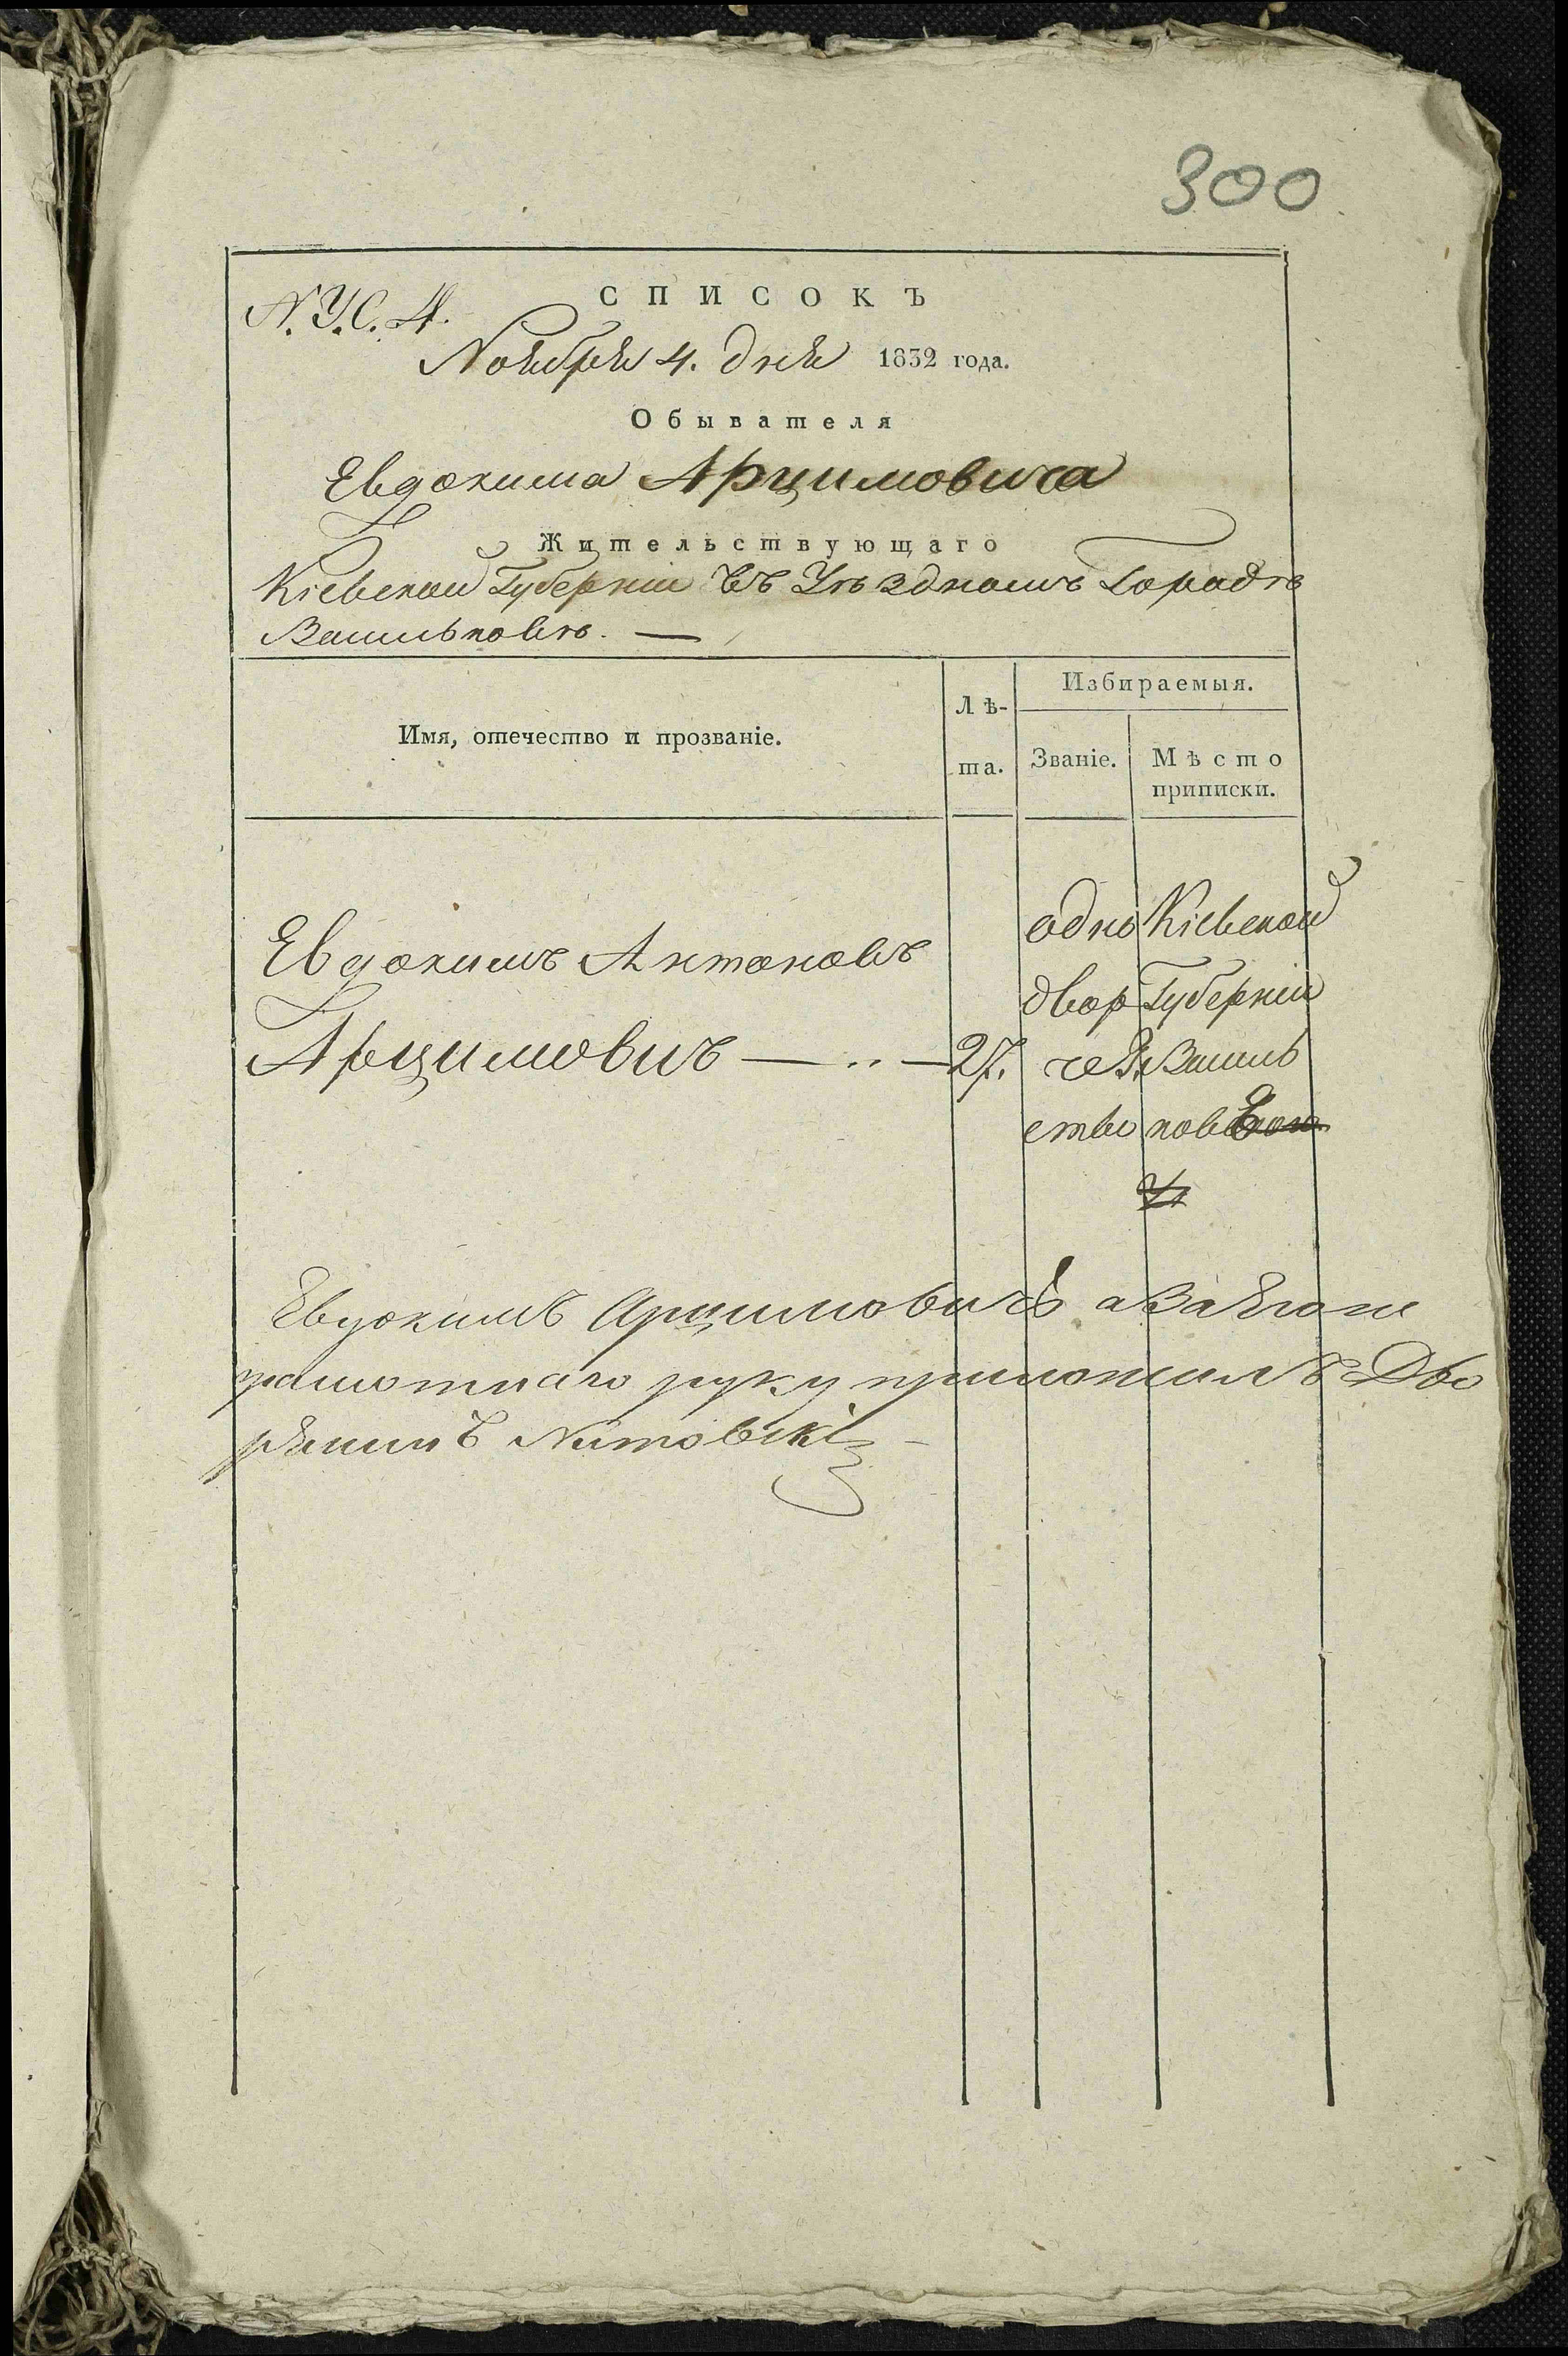 300
N. У. С. 4.
СПИСОКЪ
Ноября 4. дня 1832 года.
Обывателя
Евдокима Арцимовича
Жительствующаго
Кіевской Губерніи въ Уѣздномъ Городѣ
Васильковѣ. —
Имя, отечество и прозваніе.
Лѣ-
та.
Избираемыя.
Званіе.
Мѣсто
приписки.
Евдокимъ Антоновъ
Арцимовичъ — .. — 27.
одно
двор
че
ство
Кіевской
Губерніи
Василь
ков
Евдокимъ Арцимовичъ а за Его не
грамотнаго руку приложилъ Дво
рянинъ